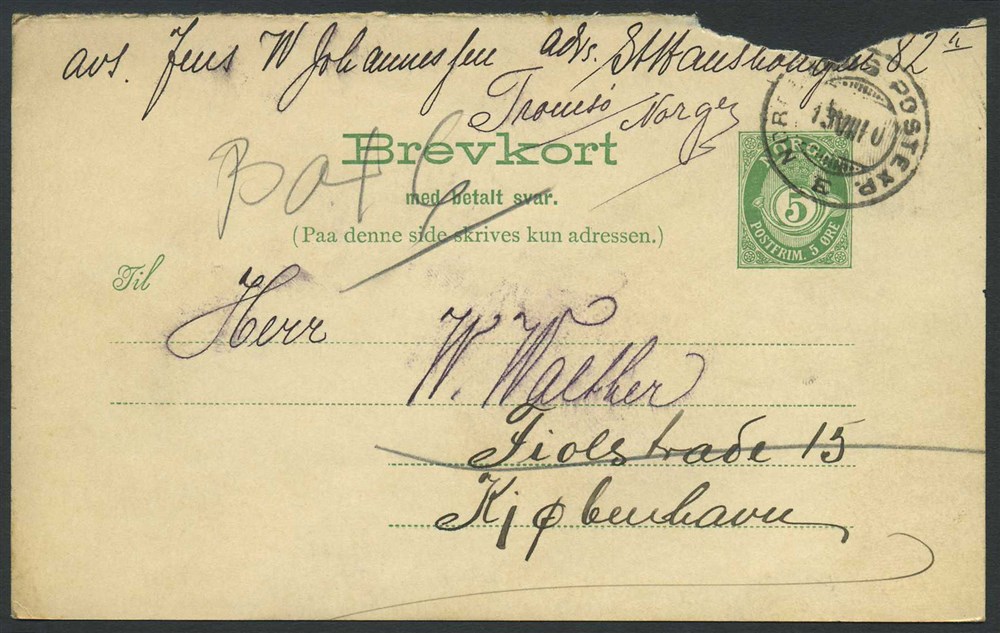 avs. Jens W Johannessen adr. St Hanshougen 82
Tromsö Norge
Brevkort
med betalt svar.
(Paa denne side skrives kun adressen.)
NORGE
5
POSTFRIM. 5 ØRE
POSTEXP. B
Til
Herr
W. Walther
Fiolstrade 15
Kjøbenhavn